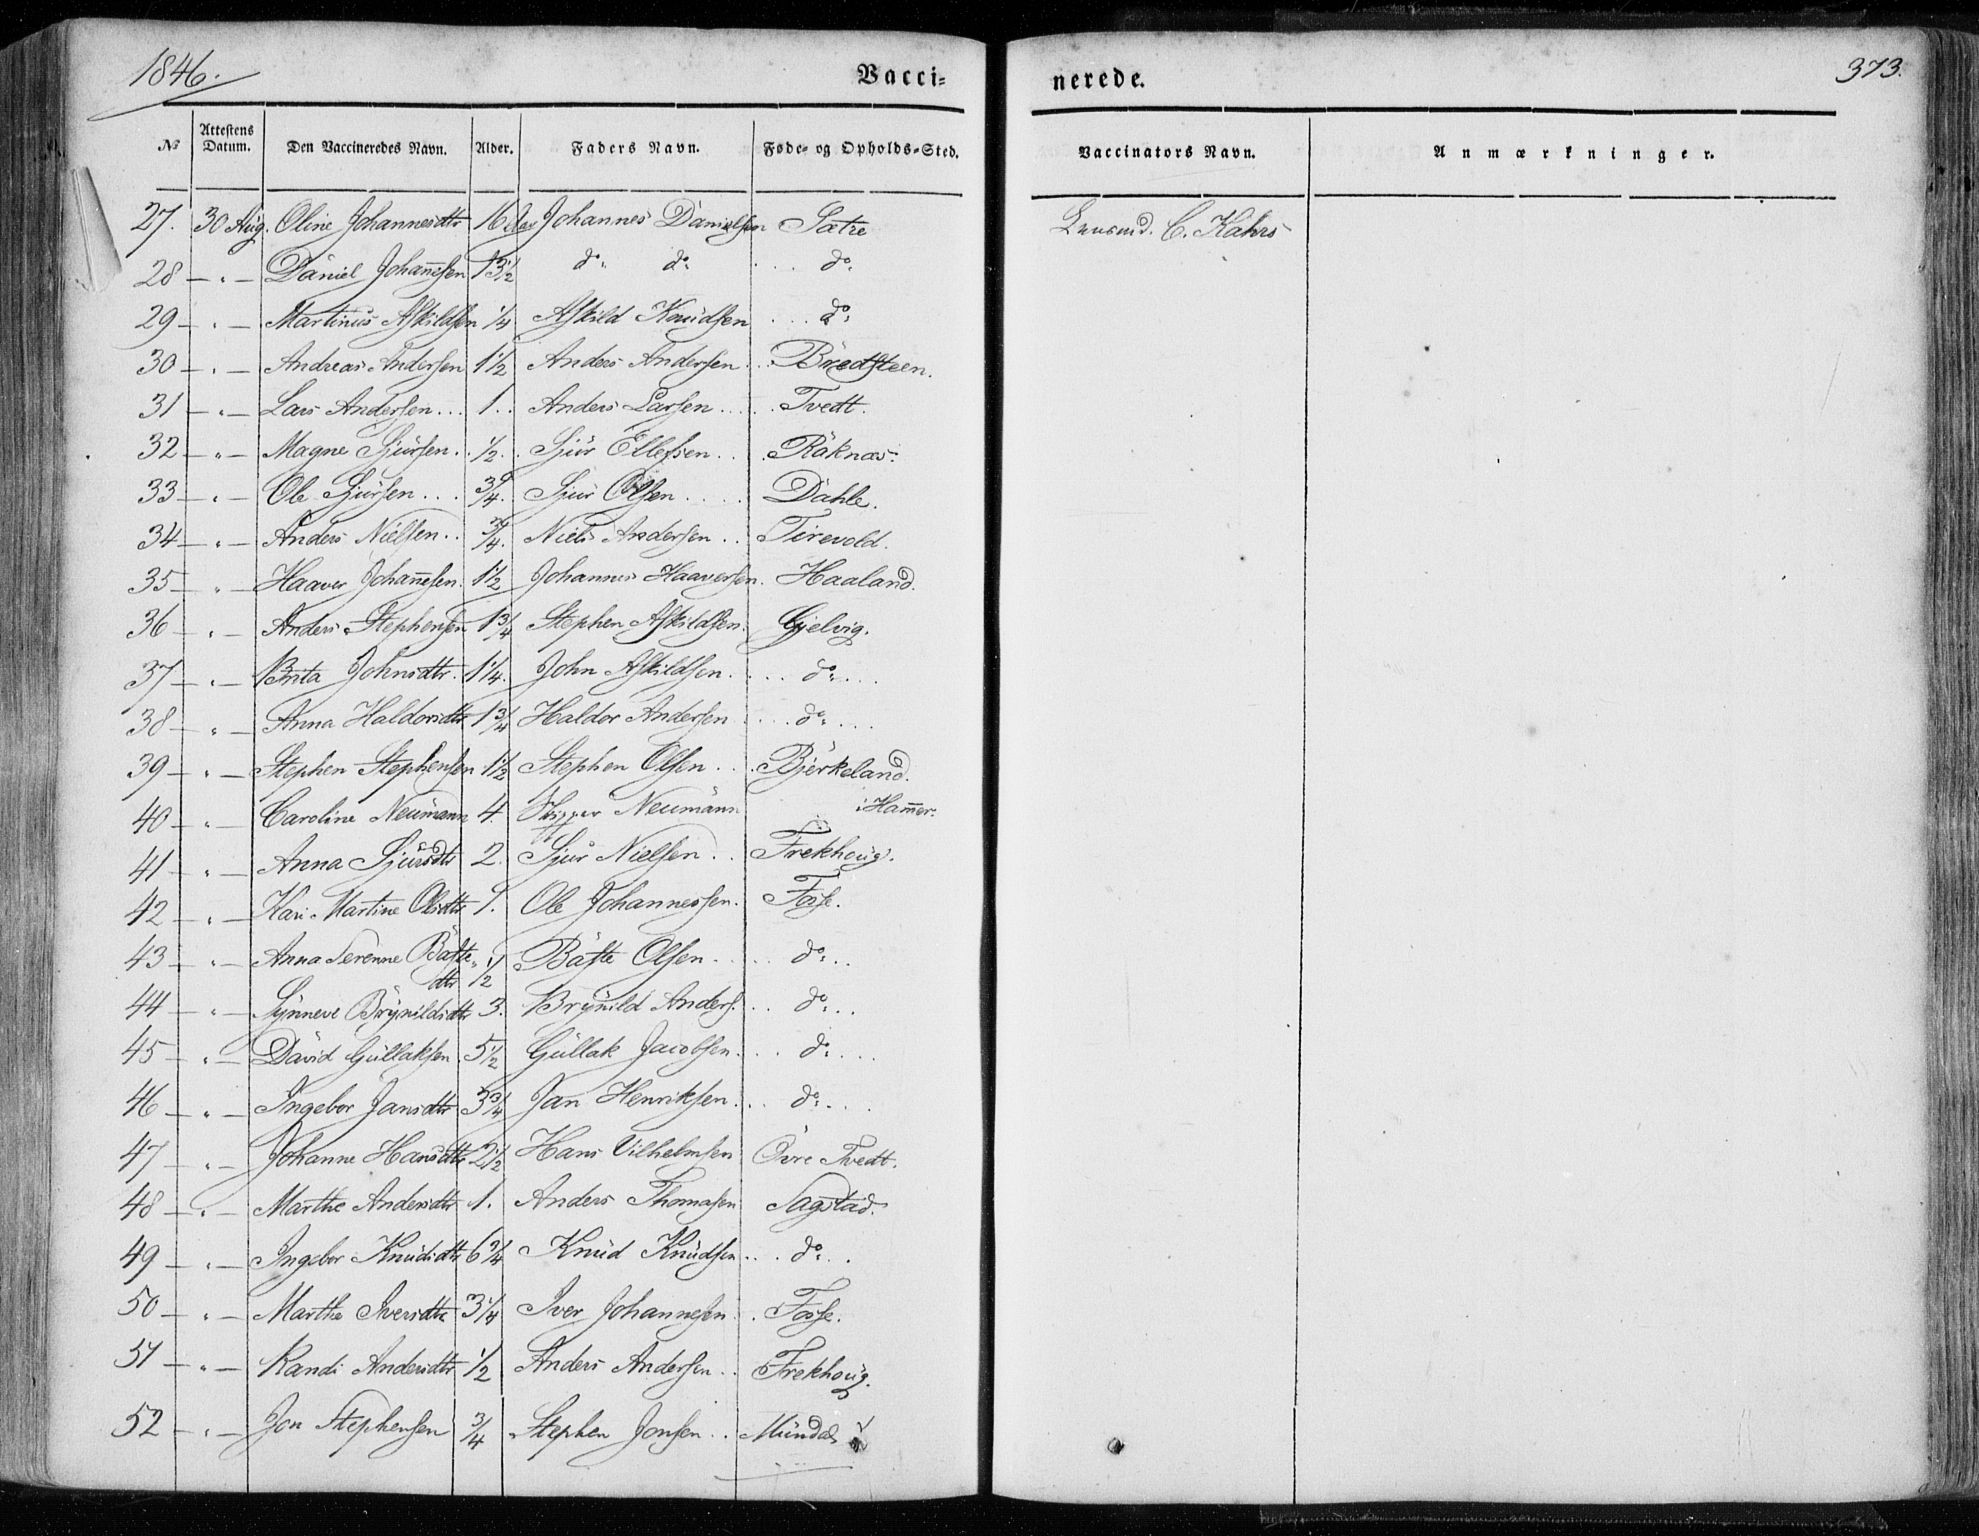 1846.
Vacci=
nerede.
373.
№ Attestens Datum. Den Vaccineredes Navn. Alder. Faders Navn. Føde- og Opholds-Sted. Vaccinators Navn. Anmærkninger.
27. 30 Aug. Oline Johannesdtr 16 Johannes Danielsen Sætre C. Kahrs
28 — " — Daniel Johan̄esen 13 1/2 do: do: . . . do:
29 — " — Martinus Askildsen 1/4 Askild Knudsen . . . do:
30 — " — Andreas Andersen 1 1/2 Anders Andersen . . Bredsteen.
31 — " — Lars Andersen . . . 1. . Anders Larsen . . . . Tvedt.
32 — " — Magne Sjursen. . 1/2. . Sjur Ellefsen . . . Räknæs.
33 — " — Ole Sjursen . . . 3/4. Sjur Olsen . . . . Dahle.
34 — " — Anders Nielsen . . 3/4. Niels Andersen . . Tirevold.
35 " — Haaver Johan̄esen. 1 1/2 Johannes Haaversen. Haaland.
36 — " — Anders Stephensen 1 3/4 Stephen Askildsen. Gjelvig.
37 — " — Brita Johnsdtr. 1 1/4. John Askildsen. . . . do: . . .
38 — " — Anna Haldorsdtr 1 3/4 Haldor Andersen . . . do: . . .
39 — " — Stephen Stephensen 1 1/2 Stephen Olsen . . . Bjerkeland.
40 — " — Caroline Neumann 4. Skipper Neumann : Ham̄er.
41 — " — Anna Sjursdtr 2. Sjur Nielsen . . Frekhoug.
42 — " — Kari Martine Olsdtr 1. Ole Johannessen. Fosse.
43 — " — Anna Serenne Baste " 1/2 Baste Olsen . . . do: . .
dtr
44 — " — Synneve Brynildsdtr 3. Brynild Anders. . . do: . .
45 — " — David Gullaksen 5 1/2 Gullak Jacobsen. . . do: . . .
46 — " — Ingebor Jansdtr 3 3/4 Jan Henriksen. . . do: . . .
47 " — Johanne Hansdtr 2 1/2 Hans Vilhelmsen Övre Tvedt.
48 — " — Marthe Andersdtr 1. Anders Thomasen Sagstad.
49 — " — Ingebor Knudsdtr 6 3/4 Knud Knudsen . . . do: . .
50 — " — Marthe Iversdtr 3 1/4 Iver Johannesen . . Fosse.
51 — " — Randi Andersdtr 1/2 Anders Andersen . . Frekhoug.
52 — " — Jon Stephensen 3/4 Stephen Jonsen . . Mundal